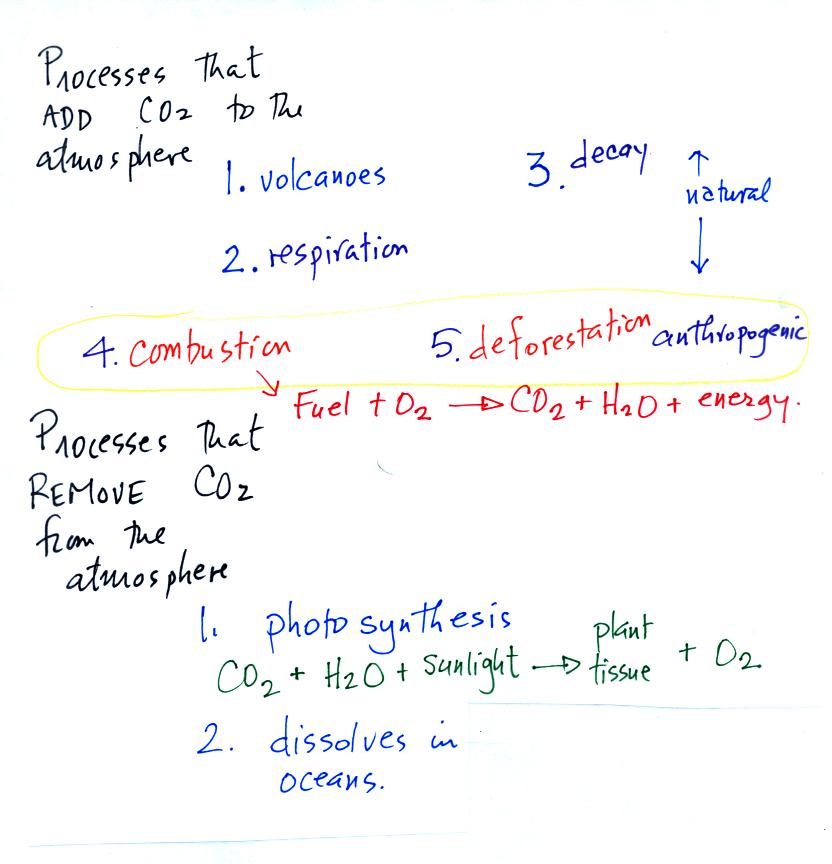 Processes that
ADD CO2 to the
atmosphere
1. volcanoes
3. decay
↑
natural
↓
2. respiration
4. combustion
5. deforestation anthropogenic
↘ Fuel + O2 → CO2 + H2O + energy.
Processes that
REMOVE CO2
from the
atmosphere
1. photosynthesis
CO2 + H2O + sunlight → plant tissue + O2
2. dissolves in
oceans.